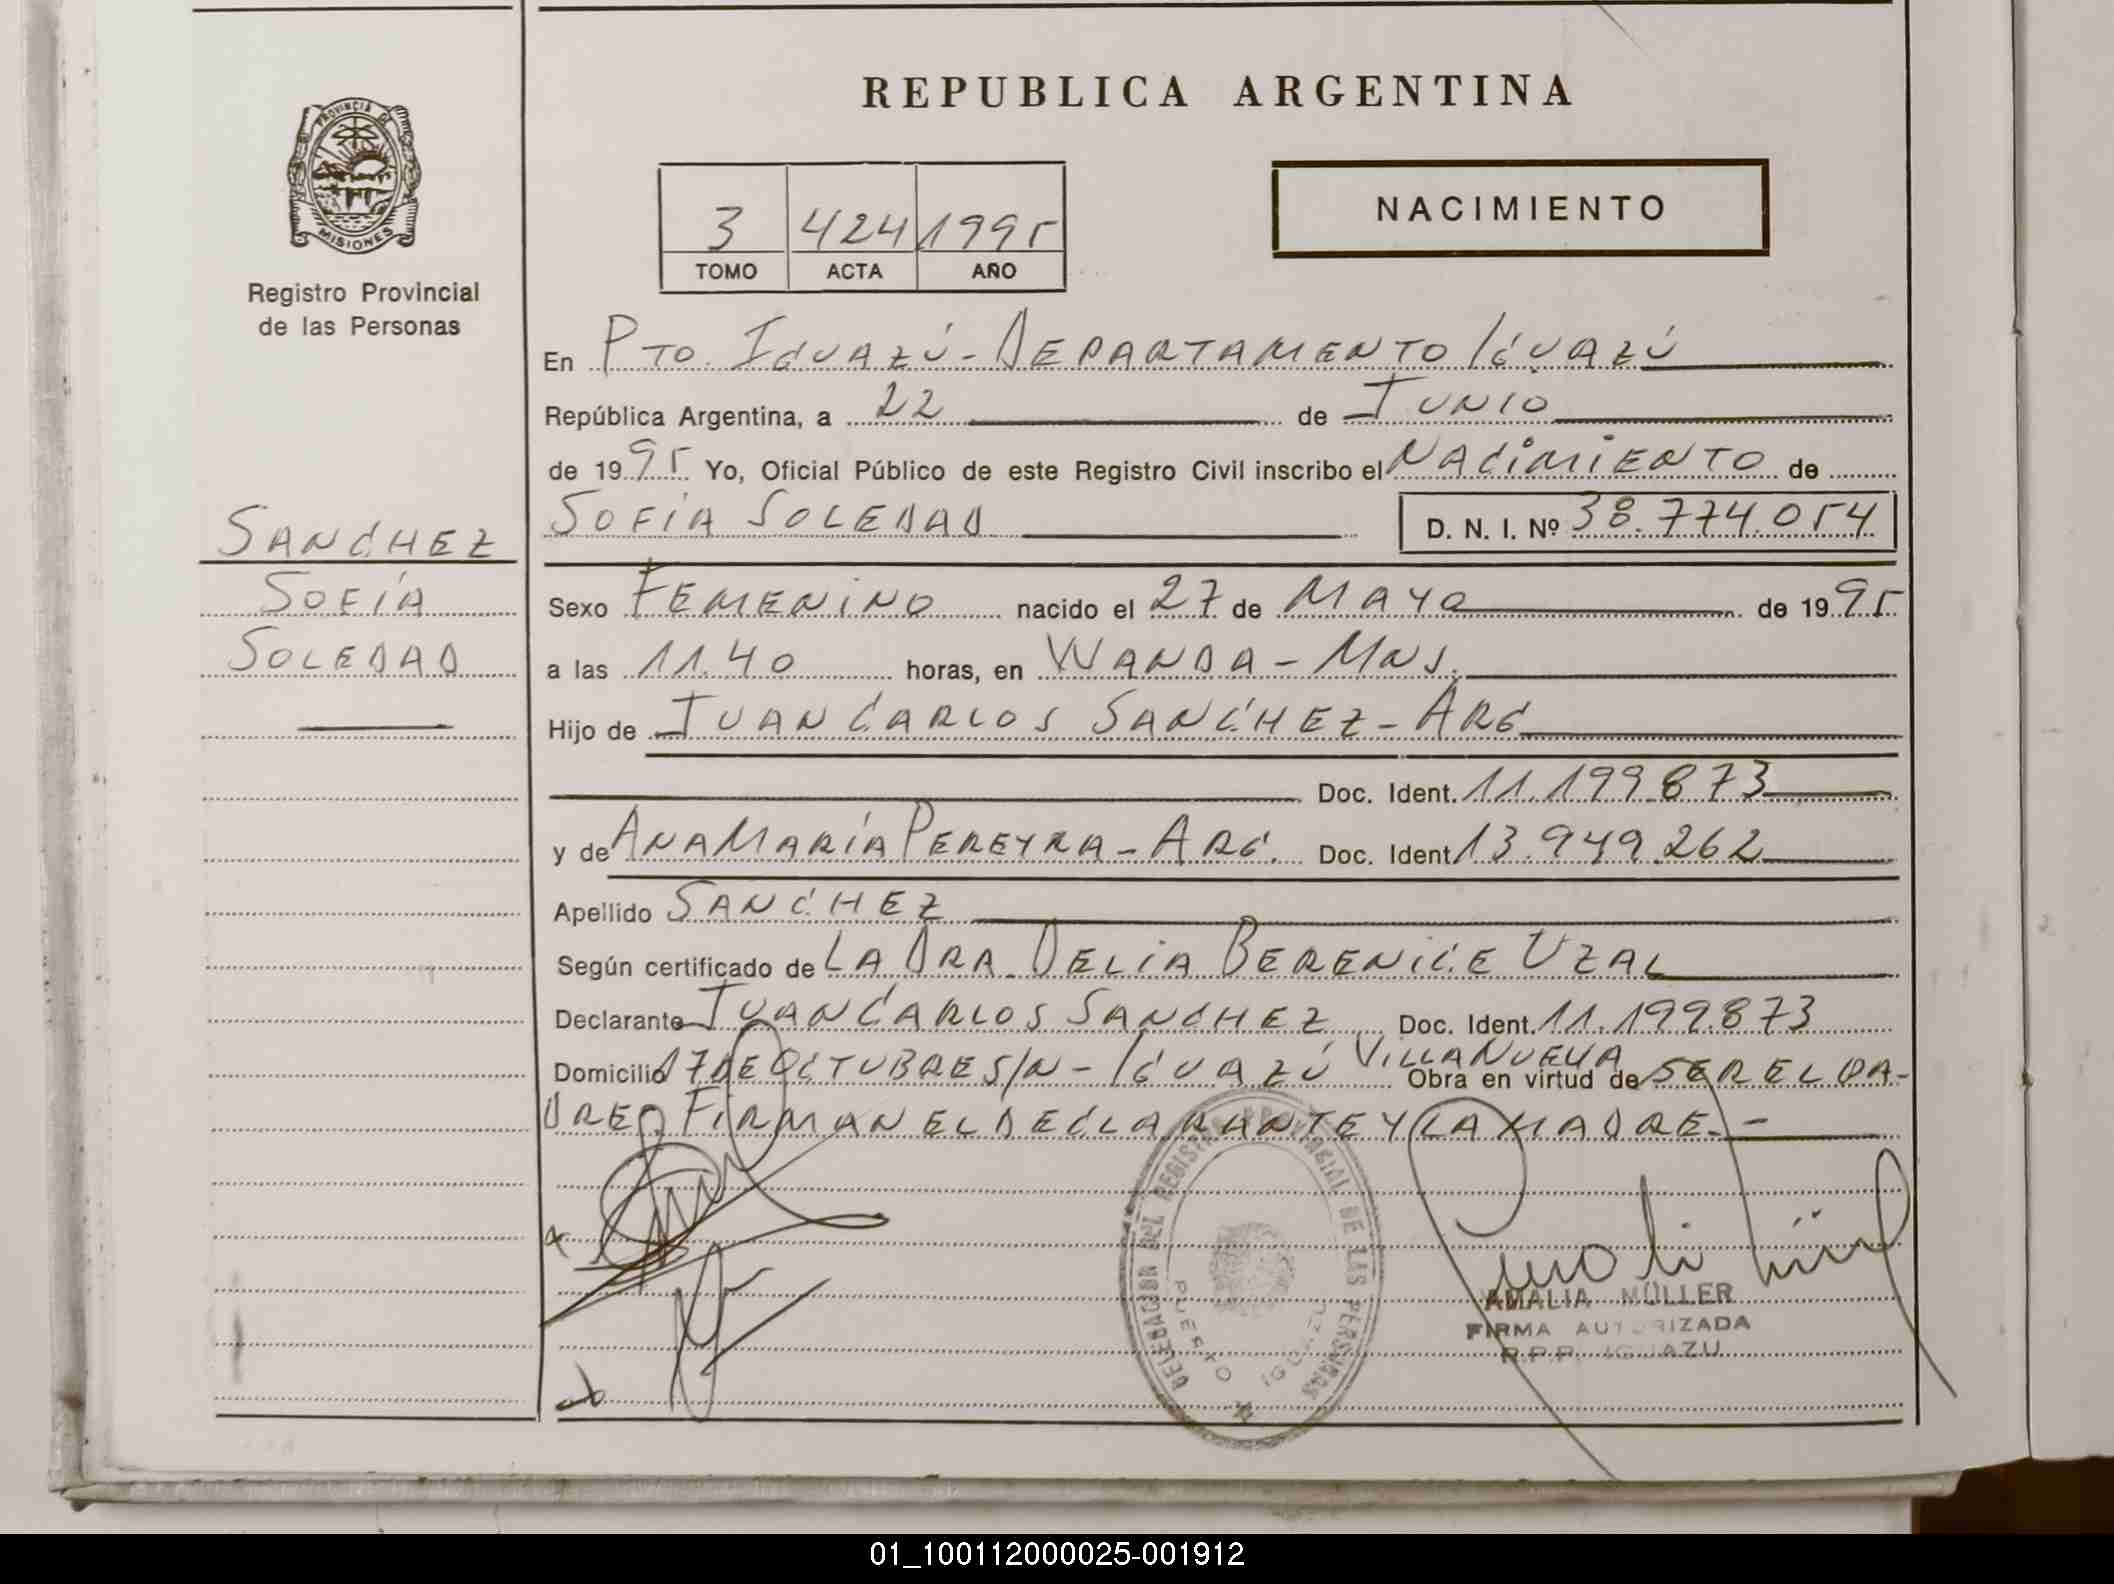 REPUBLICA ARGENTINA
PROVINCIA DE MISIONES
Registro Provincial
de las Personas
3 424 1995
TOMO ACTA AÑO
NACIMIENTO
En Pto. Iguazú - Departamento Iguazú
República Argentina, a 22 de Junio
de 1995 Yo, Oficial Público de este Registro Civil inscribo el Nacimiento de
Sofía Soledad D. N. I. Nº 38.774.054
Sanchez
Sofía
Soledad
Sexo Femenino nacido el 27 de Mayo de 1995
a las 11.40 horas, en Wanda - Mns.
Hijo de Juan Carlos Sanchez - Arg
Doc. Ident. 11.199.873
y de Ana María Pereyra - Arg. Doc. Ident 13.949.262
Apellido Sanchez
Según certificado de La Dra. Delia Berenice Uzal
Declarante Juan Carlos Sanchez Doc. Ident. 11.199.873
Domicilio 17 de Octubre S/N - Iguazú Villa Nueva Obra en virtud de ser el pa-
dre. Firman el declarante y la madre. -
DELEGACION DEL REGISTRO PROVINCIAL DE LAS PERSONAS
PUERTO IGUAZU
AMALIA MÜLLER
FIRMA AUTORIZADA
R.P.P. IGUAZU
01_100112000025-001912